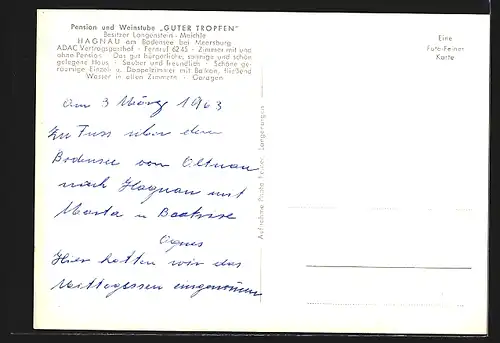 Pension und Weinstube „GUTER TROPFEN“
Besitzer Langenstein - Meichle
HAGNAU am Bodensee bei Meersburg
ADAC Vertragsgasthof · Fernruf 6245 · Zimmer mit und
ohne Pension · Das gut bürgerliche, sonnige und schön
gelegene Haus · Sauber und freundlich · Schöne ge-
räumige Einzel- u. Doppelzimmer mit Balkon, fließend
Wasser in allen Zimmern · Garagen
Eine
Foto-Feiner
Karte
am 3 März 1963
Zu Fuss über den
Bodensee von Altnau
nach Hagnau mit
Marta u Beatrise
Agnes
Hier hatten wir das
Mittagessen eingenommen
Aufnahme Photo Feiner, Langenargen